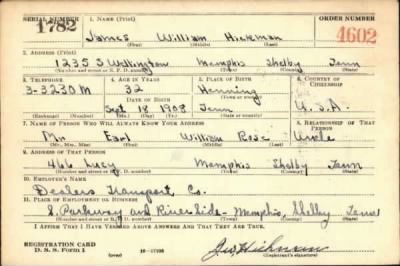 SERIAL NUMBER 1. NAME (Print) ORDER NUMBER
1782 James William Hickman 4602
(First) (Middle) (Last)
2. ADDRESS (Print)
1235 S Wellington Memphis Shelby Tenn
(Town) (County) (State)
3. TELEPHONE 4. AGE IN YEARS 5. PLACE OF BIRTH 6. COUNTRY OF CITIZENSHIP
3-3230M 32 Henning
DATE OF BIRTH (Town or county)
Sept 18 1908 Tenn U.S.A.
(Exchange) (Number) (Mo.) (Day) (Yr.) (State or country)
7. NAME OF PERSON WHO WILL ALWAYS KNOW YOUR ADDRESS 8. RELATIONSHIP OF THAT PERSON
Mr Earl William Rose Uncle
(Mr., Mrs., Miss) (First) (Middle) (Last)
9. ADDRESS OF THAT PERSON
466 Lucy Memphis Shelby Tenn
(Town) (County) (State)
10. EMPLOYER'S NAME
Dealers Transport Co.
11. PLACE OF EMPLOYMENT OR BUSINESS
S. Parkway and Riverside - Memphis Shelby Tenn
(Town) (County) (State)
I AFFIRM THAT I HAVE VERIFIED ABOVE ANSWERS AND THAT THEY ARE TRUE.
REGISTRATION CARD
D. S. S. Form 1 (over) (Registrant's signature)